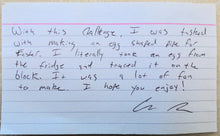 With this challenge, I was tasked
with making an egg shaped pipe for
Easter. I literally took an egg from
the fridge and traced it on the
block. It was a lot of fun
to make I hope you enjoy!